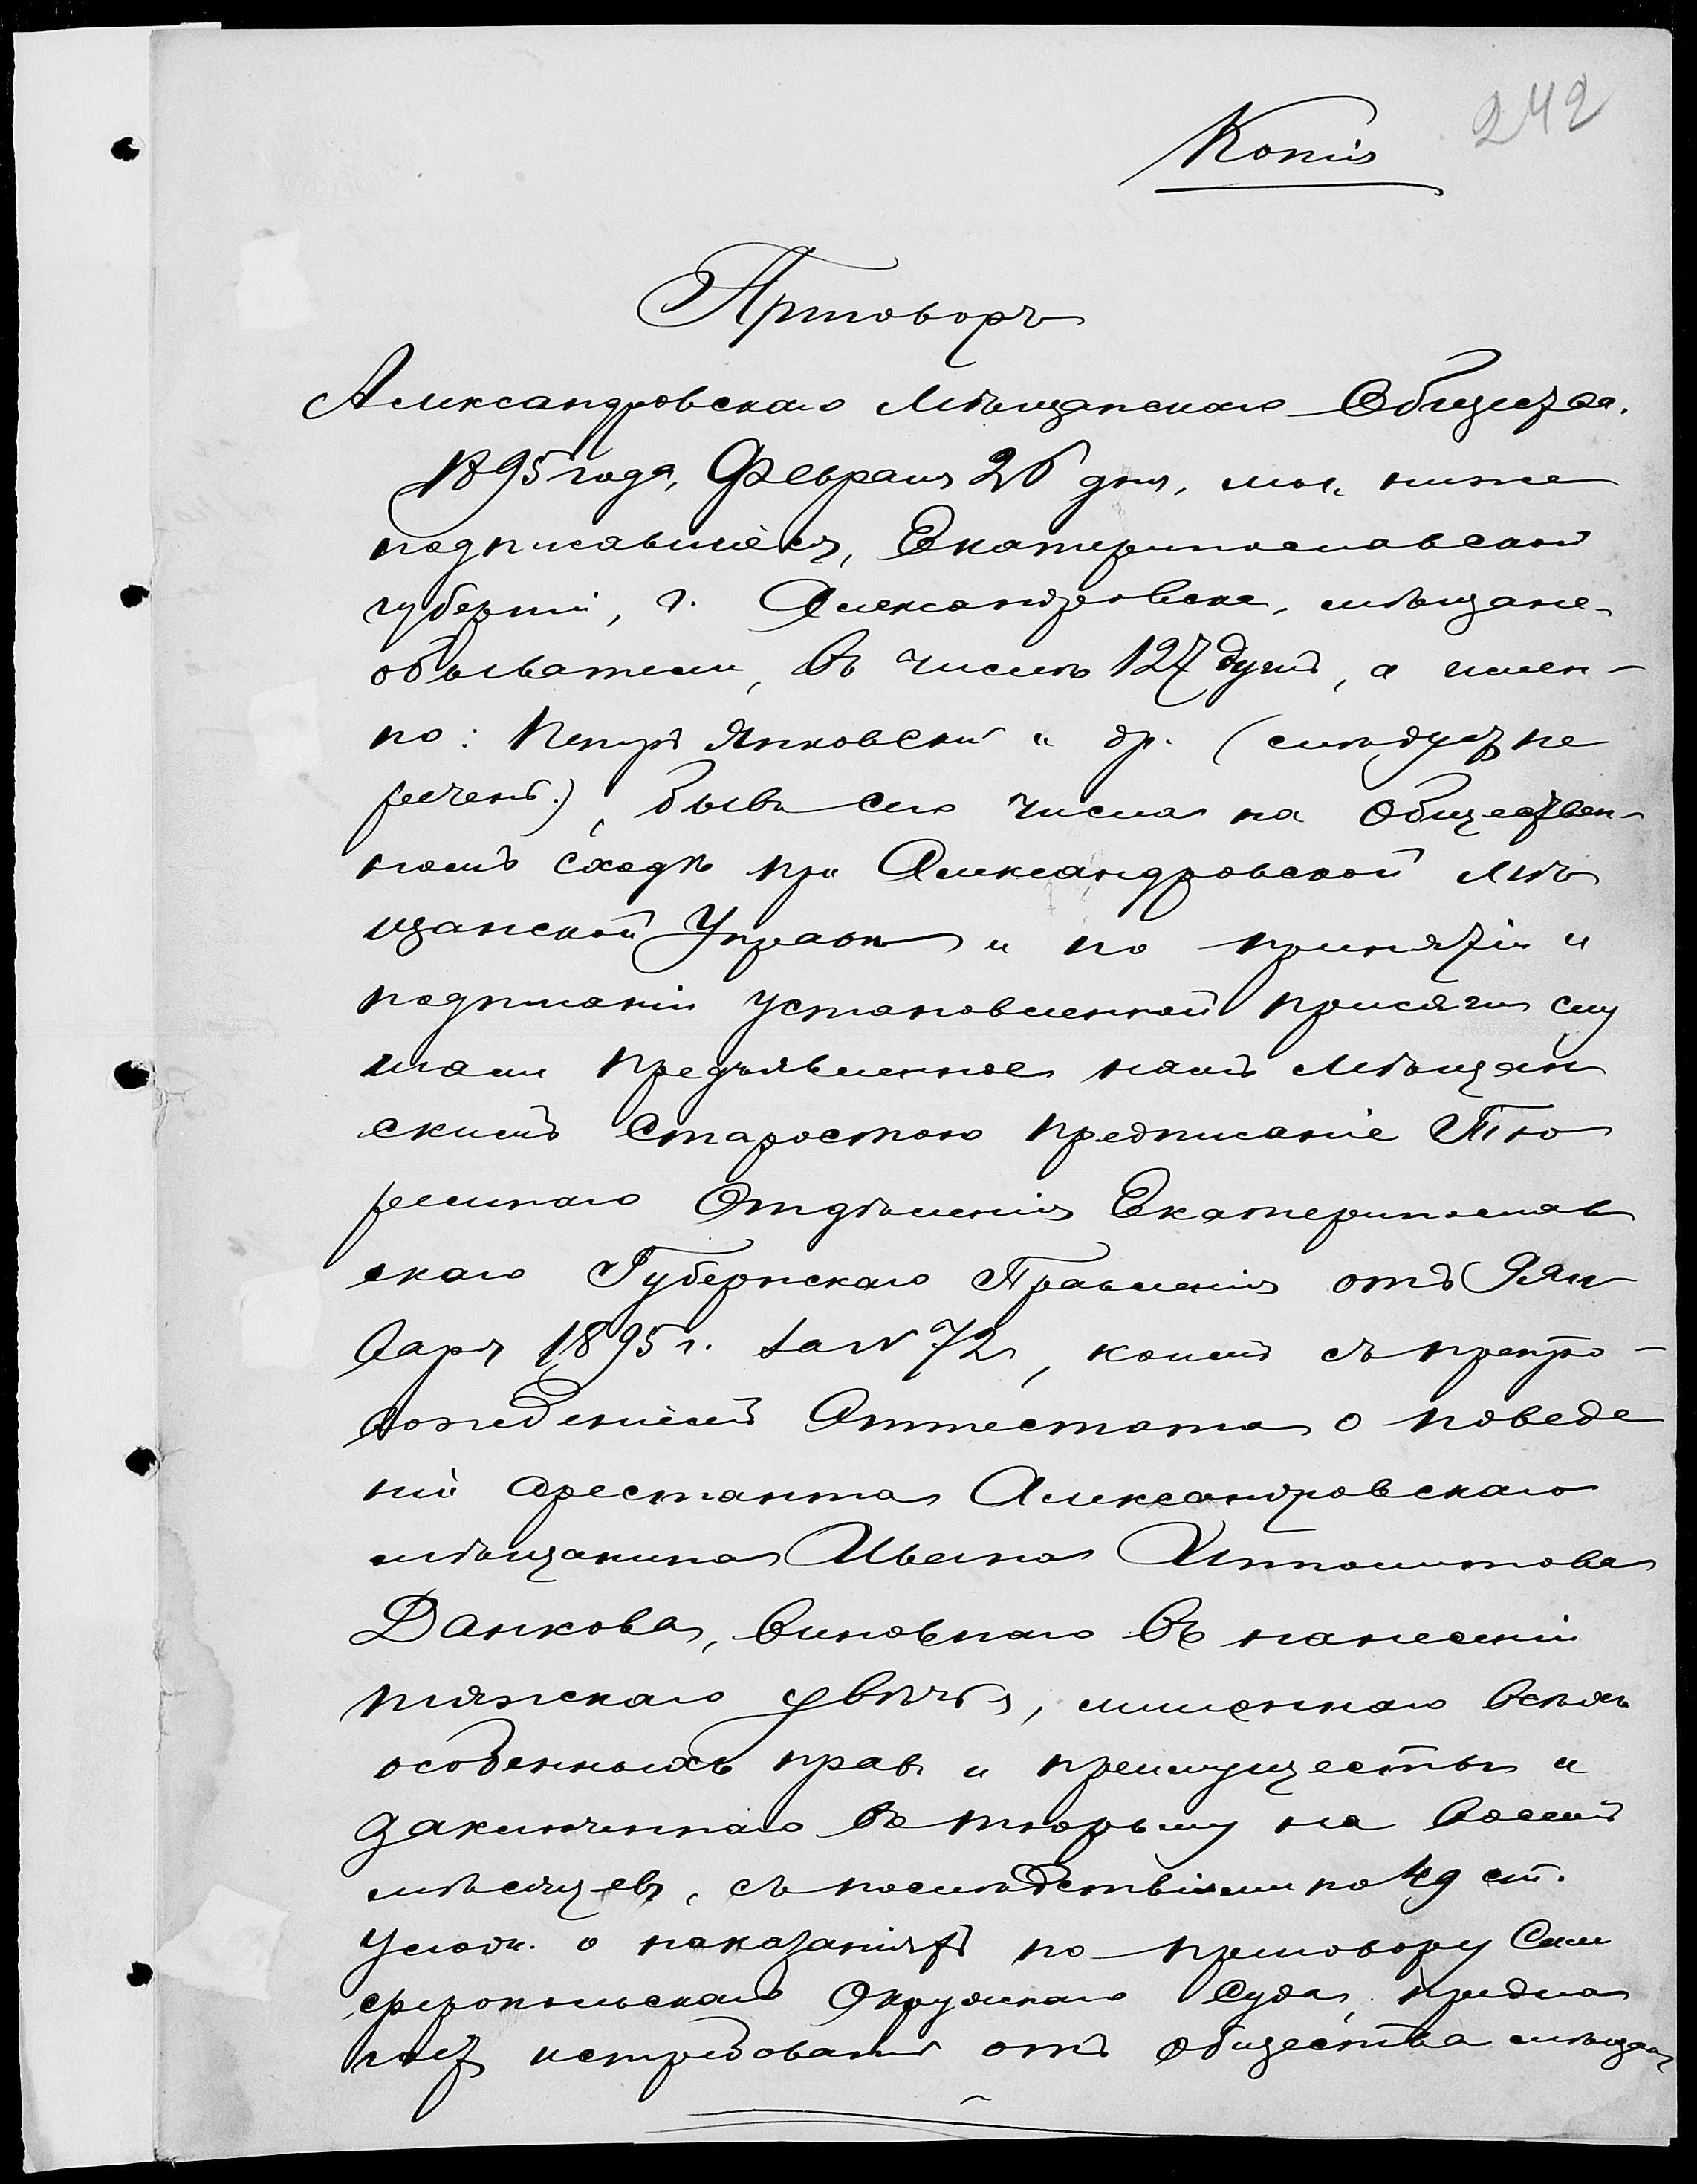 242
Копія
Приговоръ
Александровскаго Мѣщанскаго Общества.
1895 года, Февраля 26 дня, мы, ниже
подписавшіеся, Екатеринославской
губерніи, г. Александровска, мѣщане-
обыватели, въ числѣ 127 душъ, а имен-
но: Петръ Янковскій и др. (слѣдуетъ пе
речень.), бывъ сего числа на Обществен-
номъ сходѣ при Александровской Мѣ
щанской Управѣ и по принятіи и
подписаніи установленной присяги слу
шали предъявленное намъ Мѣщан
скимъ Старостою предписаніе Тю
ремнаго Отдѣленія Екатеринослав
скаго Губернскаго Правленія отъ 9 Ян
варя 1895 г. за № 72, коимъ съ препро-
вожденіемъ Аттестата о поведе
ніи арестанта Александровскаго
мѣщанина Ивана Ипполитова
Данкова, виновнаго въ нанесеніи
тяжскаго увѣчья, лишеннаго всѣхъ
особенныхъ правъ и преимуществъ и
заключеннаго въ тюрьму на восемь
мѣсяцевъ, съ послѣдствіями по 49 ст.
Уложен. о наказаніяхъ по приговору Сим
феропольскаго Окружнаго Суда, предла
гаетъ истребовать отъ общества мѣщан